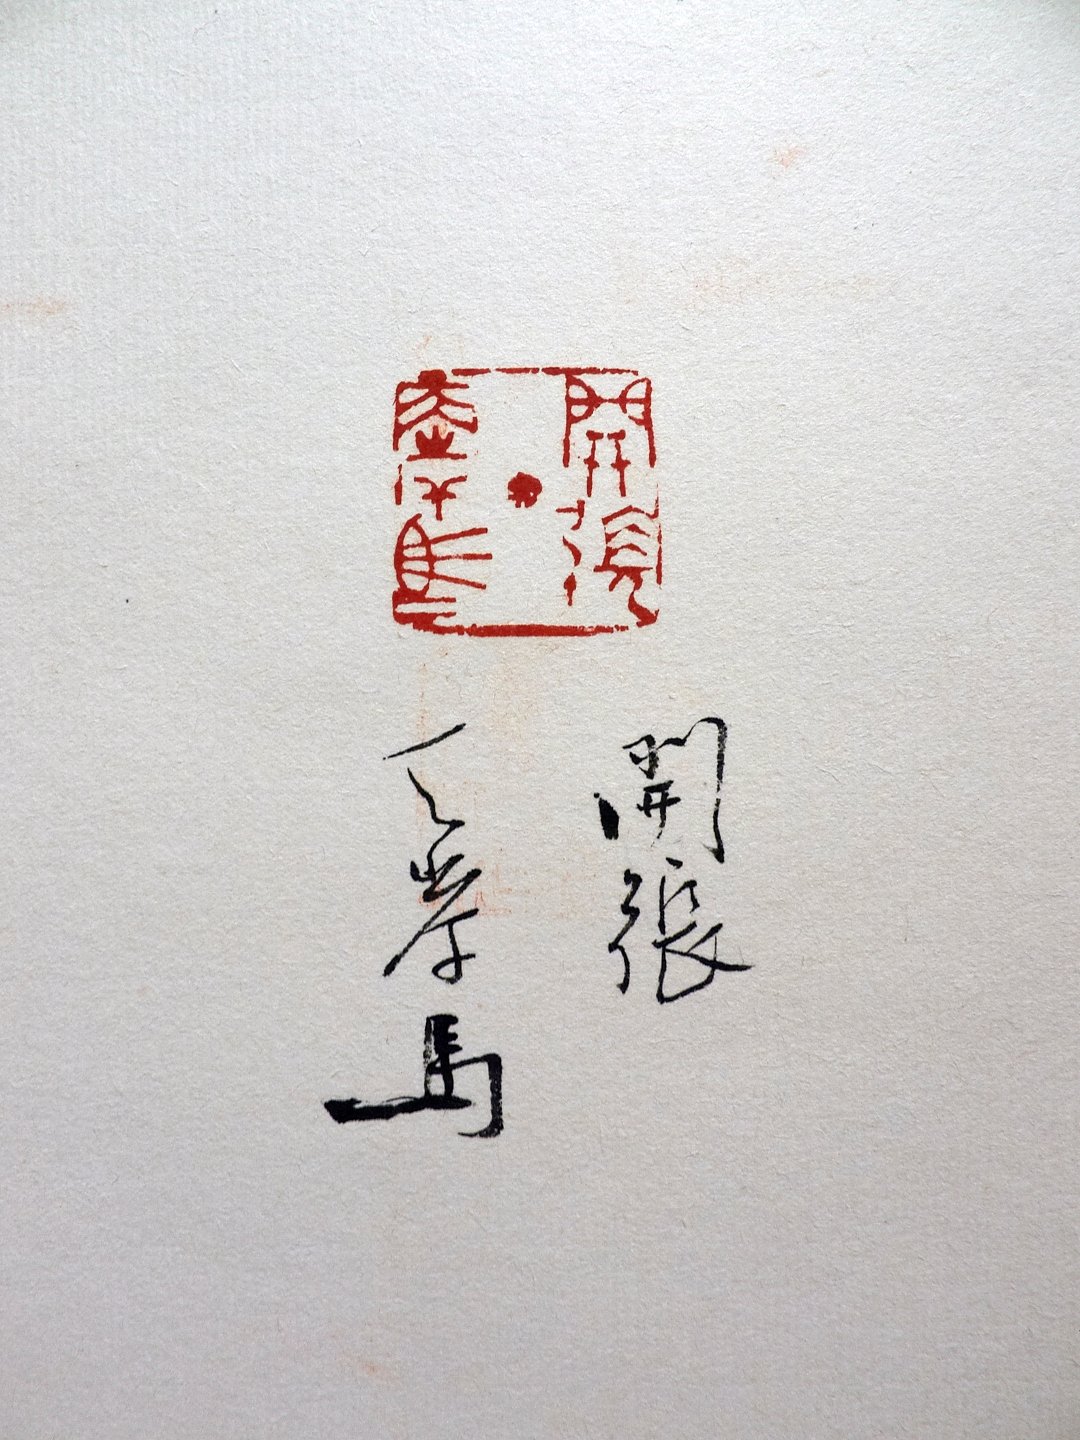 開張
天岸馬
開張
天岸馬